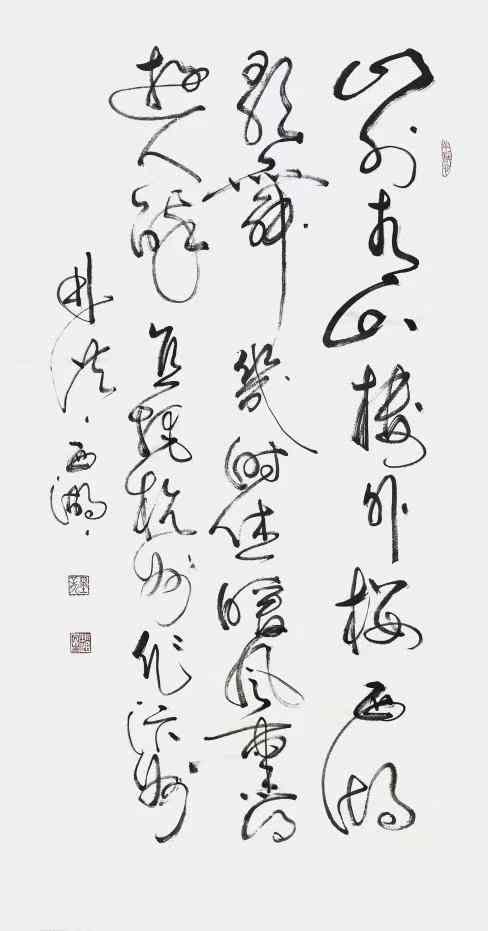 山外青山樓外樓西湖
歌舞幾時休暖风熏得
遊人醉直把杭州作汴州
林西湖